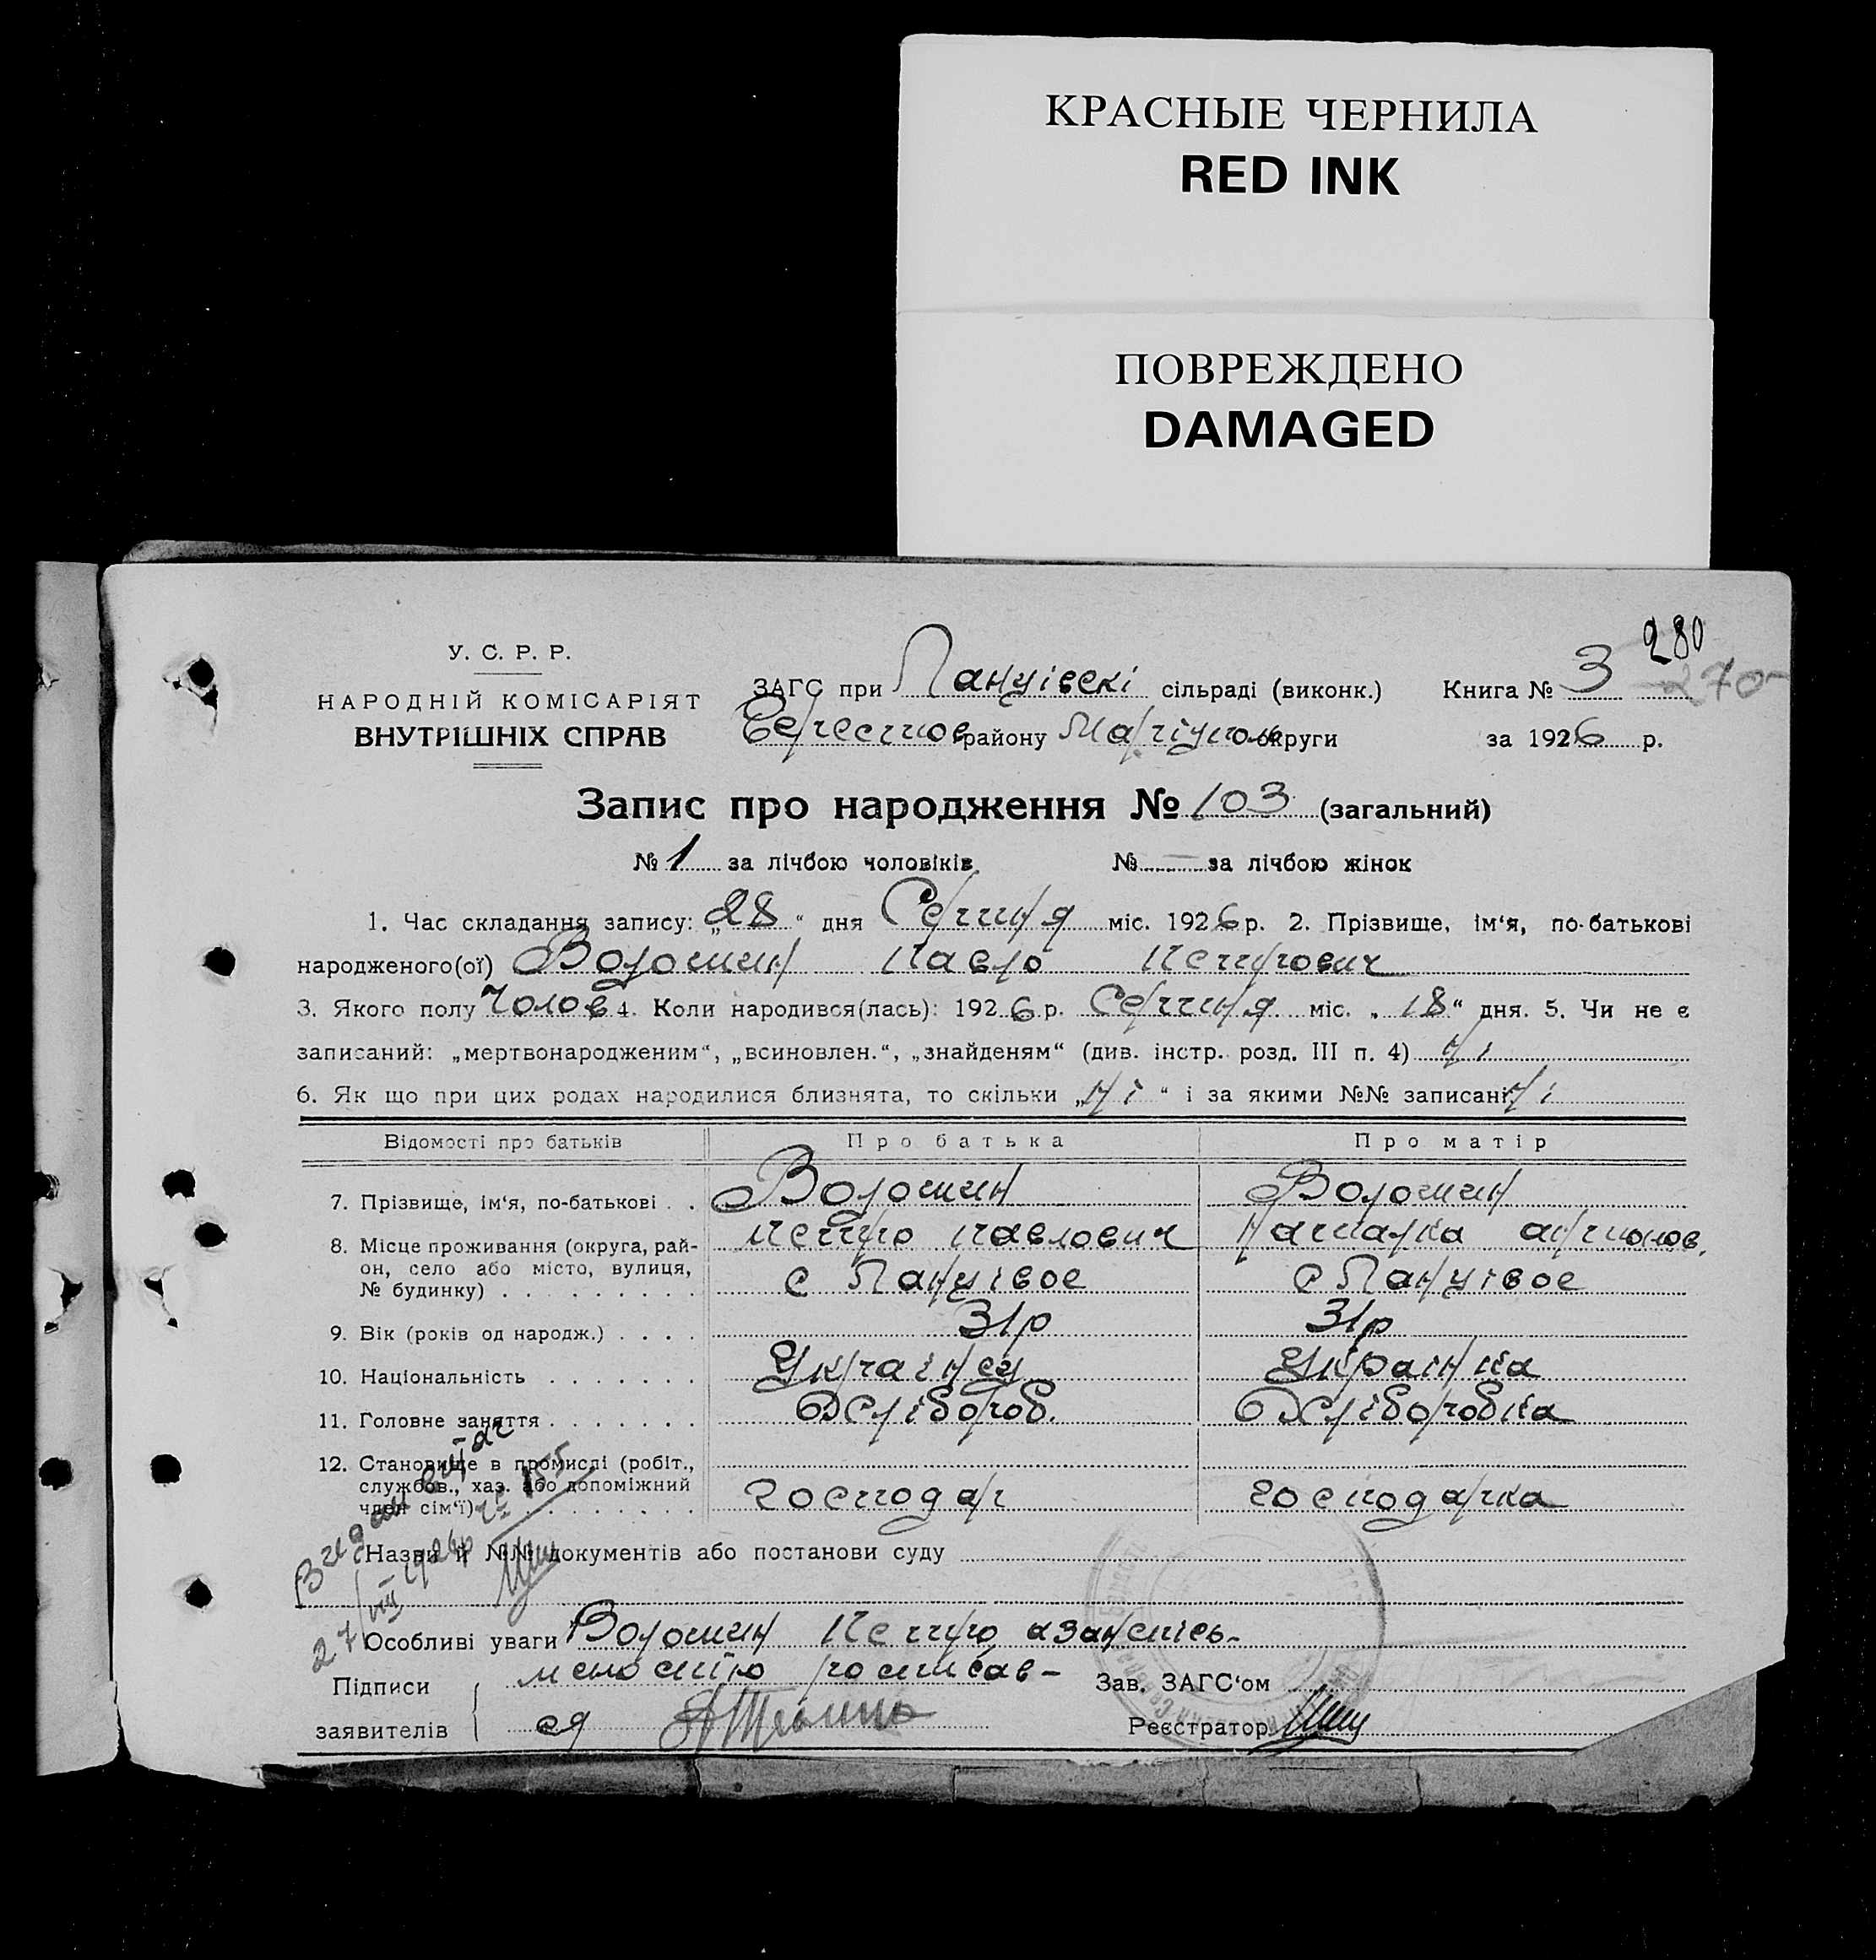 КРАСНЫЕ ЧЕРНИЛА
RED INK
ПОВРЕЖДЕНО
DAMAGED
280
270
У. С. Р. Р.
НАРОДНІЙ КОМІСАРІЯТ
ВНУТРІШНІХ СПРАВ
ЗАГС при сільраді (виконк.) Книга № 3
району Маріуполь округи за 1926 р.
Запис про народження № 103 (загальний)
№ 1 за лічбою чоловіків № — за лічбою жінок
1. Час складання запису: „28“ дня Серпня міс. 1926 р. 2. Прізвище, ім‘я, по-батькові
народженого(ої) Волошин Павло Петрович
3. Якого полу Чолов 4. Коли народився(лась): 1926 р. Серпня міс. „18“ дня. 5. Чи не є
записаний: „мертвонародженим“, „всиновлен.“, „знайденям“ (див. інстр. розд. III п. 4) ні
6. Як що при цих родах народилися близнята, то скільки „ні“ і за якими №№ записані ні
Відомості про батьків Про батька Про матір
7. Прізвище, ім‘я, по-батькові . . Волошин Волошин
Петро Павлович Наталка
8. Місце проживання (округа, рай-
он, село або місто, вулиця,
№ будинку) . . . . . . . . . с с
9. Вік (років од народж.) . . . . 31р 31р
10. Національність . . . . . . . Українец Украінка
11. Головне заняття . . . . . . . Хлібороб. Хліборобка
12. Становище в промислі (робіт.,
службов., хаз. або допоміжний
член сім‘ї) . . . . . . . . господар господарка
Назви й №№ документів або постанови суду
Особливі уваги Волошин Петро
Підписи Зав. ЗАГС‘ом
заявителів Реєстратор